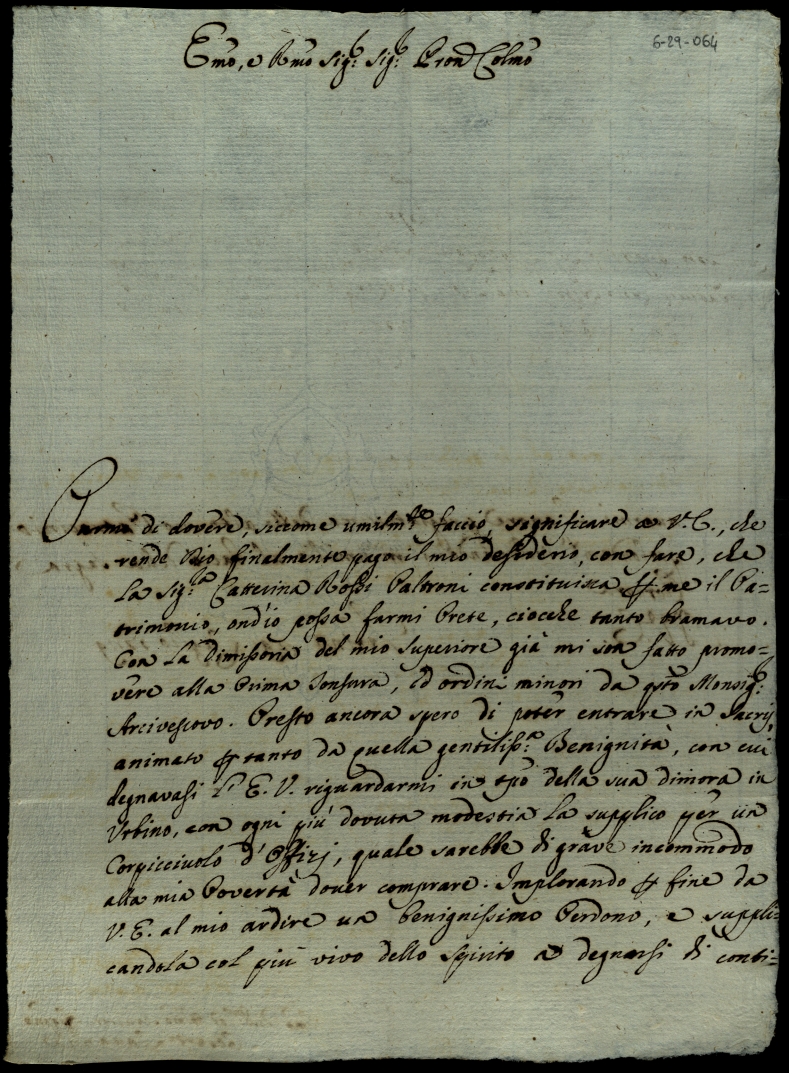 6-29-064
Emo, e Rmo Sigr. Sigr. Pron Colmo
Parmi di dovere, siccome umilmte faccio, significare a V. E., che
rende Dio finalmente pago il mio desiderio, con fare, che
la Sigra Catterina Rossi Paltroni constituisca per me il Pa=
trimonio, ond'io possa farmi Prete, ciocche tanto bramavo.
Con la Dimissoria del mio Superiore già mi son fatto promo=
vere alla Prima Tonsura, ed ordini minori da qsto Monsigr.
Arcivescovo. Presto ancora spero di poter entrare in Sacris,
animato per tanto da quella gentilissa Benignità, con cui
degnavasi l'E. V. riguardarmi in tpo della sua dimora in
Urbino, con ogni più dovuta modestia la supplico per un
Corpicciuolo d'Offizj, quale sarebbe di grave incommodo
alla mia Povertà dover comprare. Implorando per fine da
V. E. al mio ardire un benignissimo Perdono, e suppli=
candola col più vivo dello spirito a degnarsi di conti=